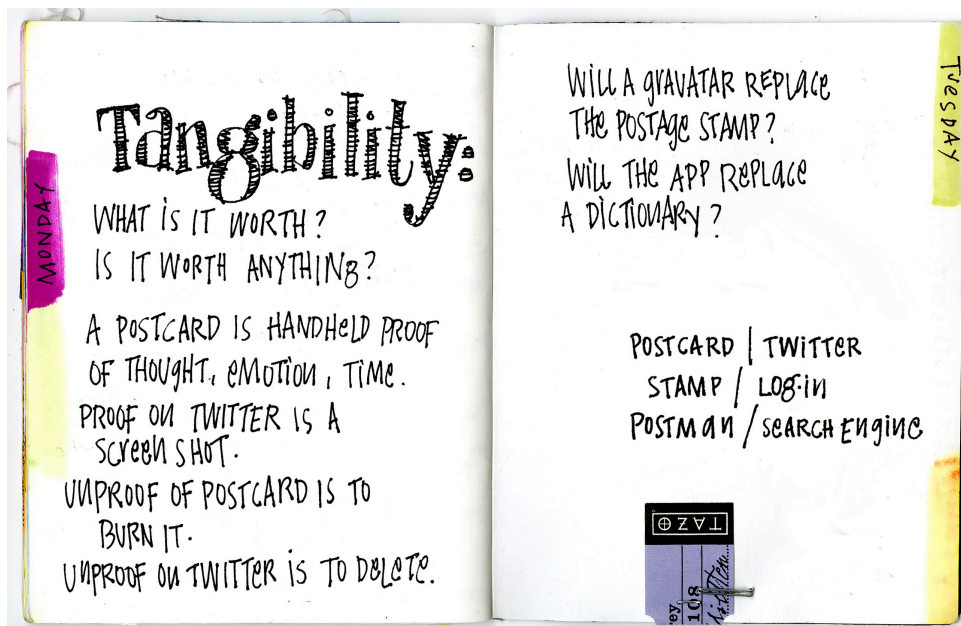 MONDAY
Tangibility:
WHAT IS IT WORTH?
IS IT WORTH ANYTHING?
A POSTCARD IS HANDHELD PROOF
OF THOUGHT, EMOTION, TIME.
PROOF ON TWITTER IS A
SCREEN SHOT.
UNPROOF OF POSTCARD IS TO
BURN IT.
UNPROOF ON TWITTER IS TO DELETE.
TUESDAY
WILL A GRAVATAR REPLACE
THE POSTAGE STAMP?
WILL THE APP REPLACE
A DICTIONARY?
POSTCARD | TWITTER
STAMP / LOG-IN
POSTMAN / SEARCH ENGINE
TAZO
ey
108